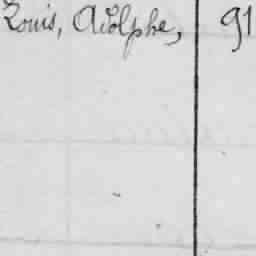 Louis, Adolphe, 91